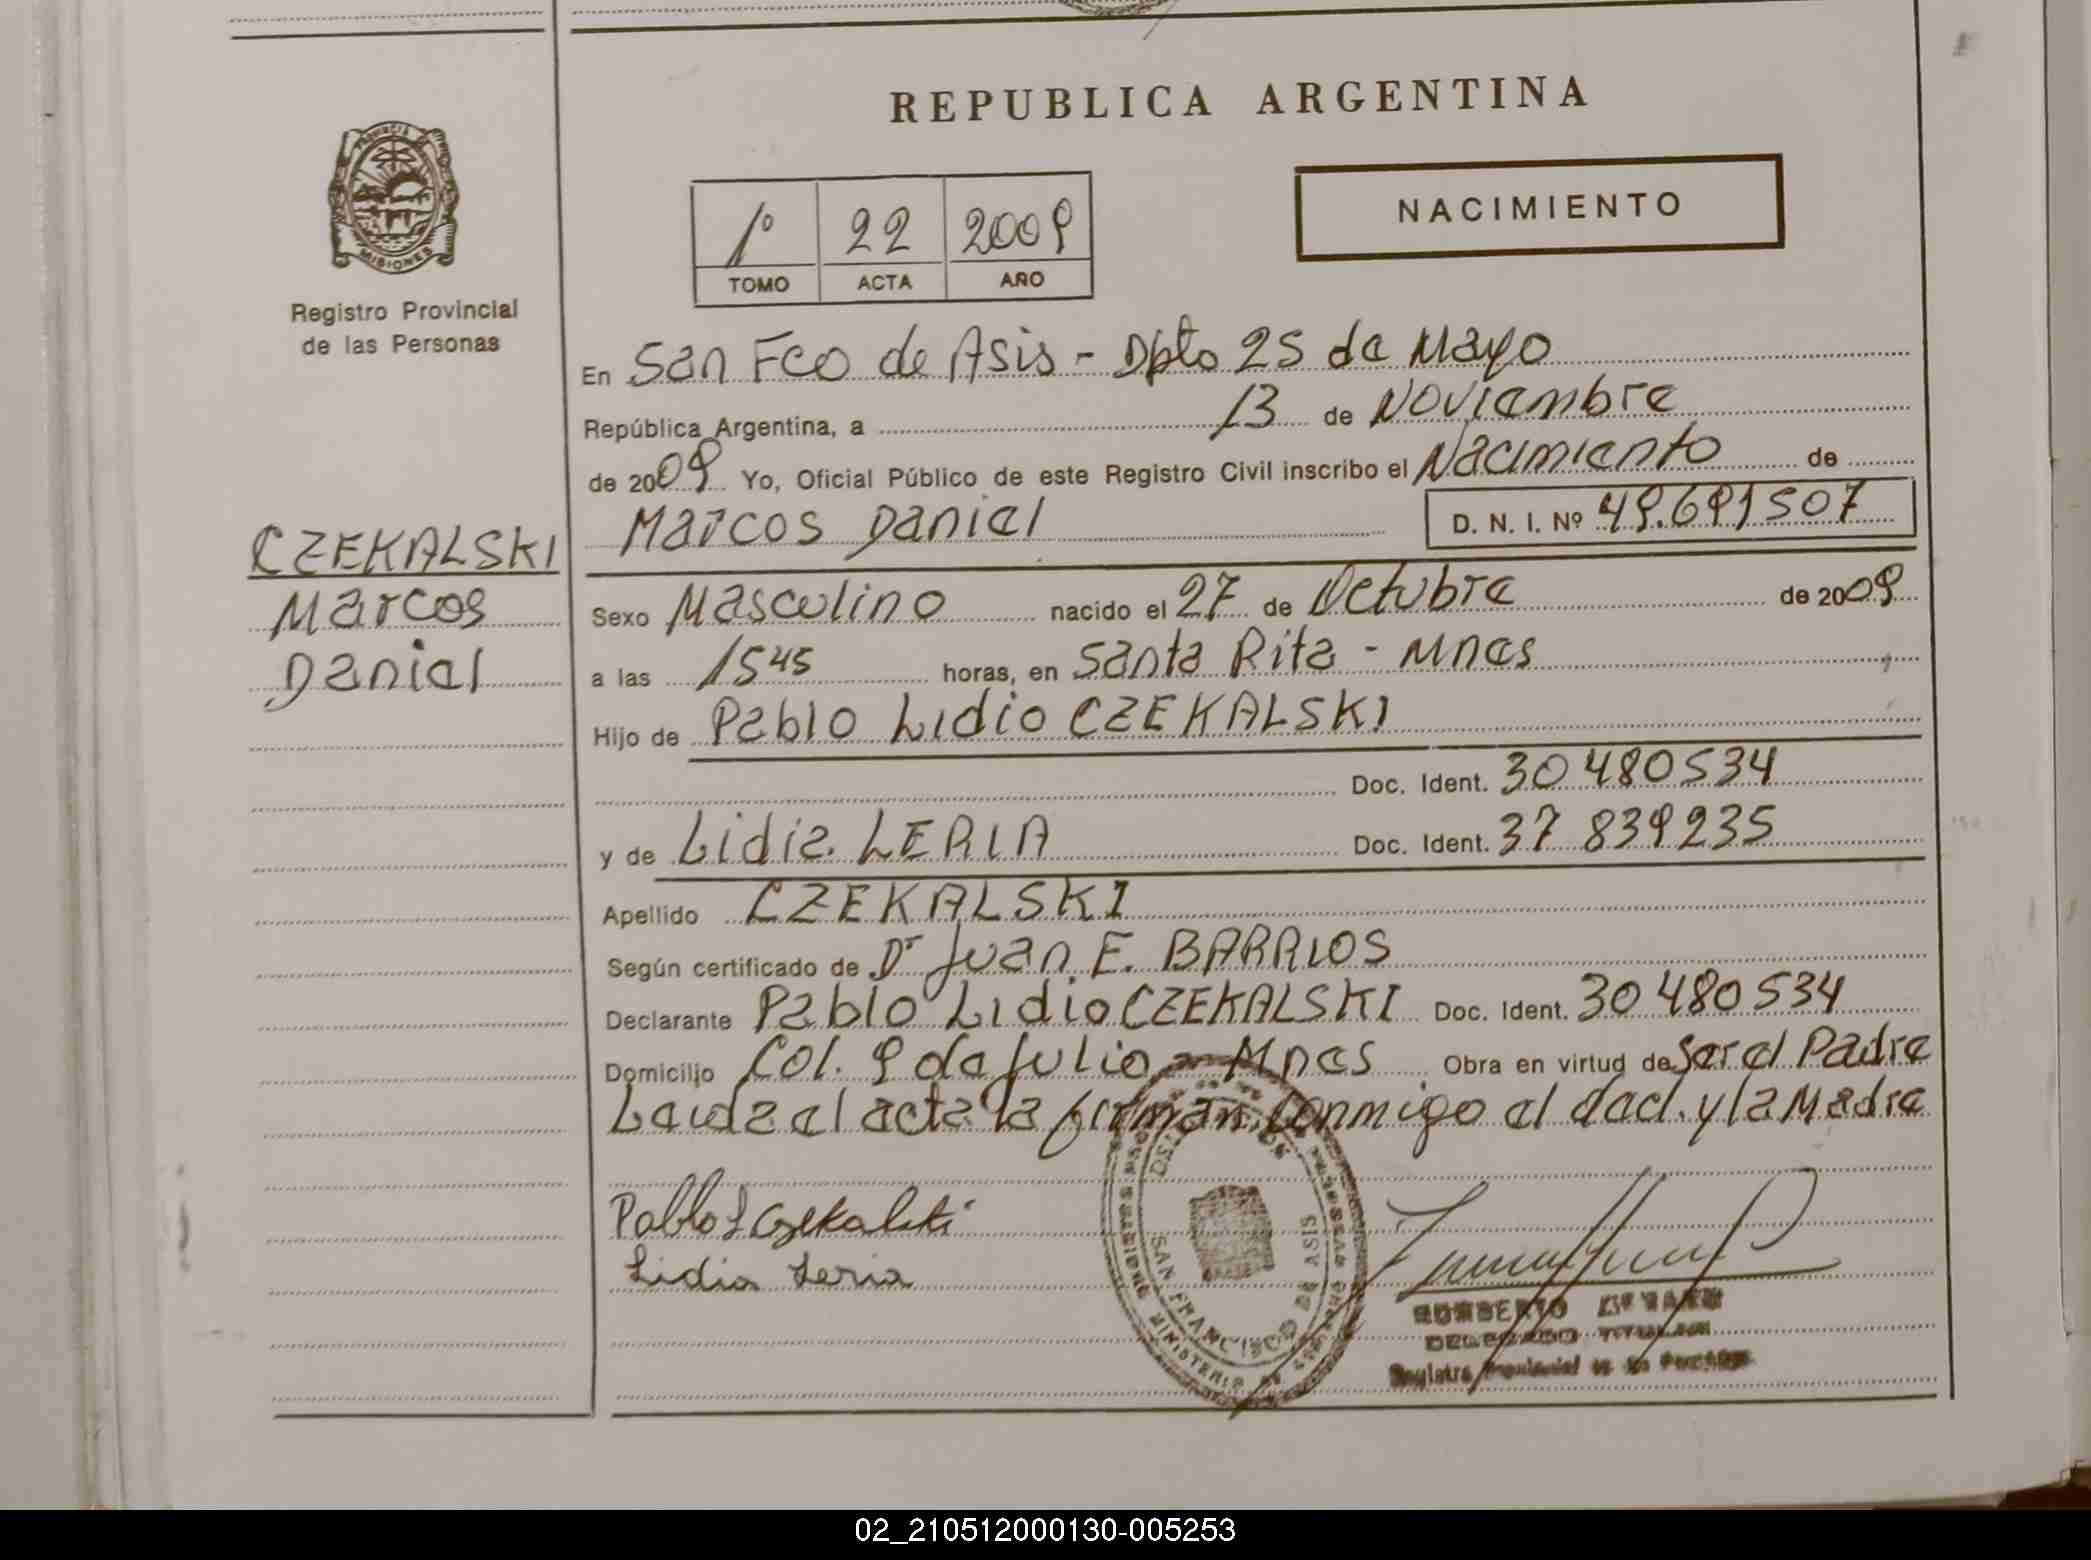 REPUBLICA ARGENTINA
PROVINCIA DE MISIONES
Registro Provincial
de las Personas
1º 22 2009
TOMO ACTA AÑO
NACIMIENTO
En San Fco de Asis - Dpto 25 de Mayo
República Argentina, a 13 de Noviembre
de 2009 Yo, Oficial Público de este Registro Civil inscribo el Nacimiento de
Marcos Daniel D. N. I. Nº 49.691507
CZEKALSKI
Marcos
Daniel
Sexo Masculino nacido el 27 de Octubre de 2009
a las 1545 horas, en Santa Rita - Mnes
Hijo de Pablo Lidio CZEKALSKI
Doc. Ident. 30 480534
y de Lidia LERIA Doc. Ident. 37 839235
Apellido CZEKALSKI
Según certificado de Dr Juan E. BARRIOS
Declarante Pablo Lidio CZEKALSKI Doc. Ident. 30 480534
Domicilio Col. 9 de Julio - Mnes Obra en virtud de Ser el Padre
Leida el acta la firman conmigo el decl. y la Madre
Pablo L Czekalski
Lidia Leria
SAN FRANCISCO DE ASIS
MINISTERIO DE
DELEGADO TITULAR
Registro Provincial de las Personas
02_210512000130-005253